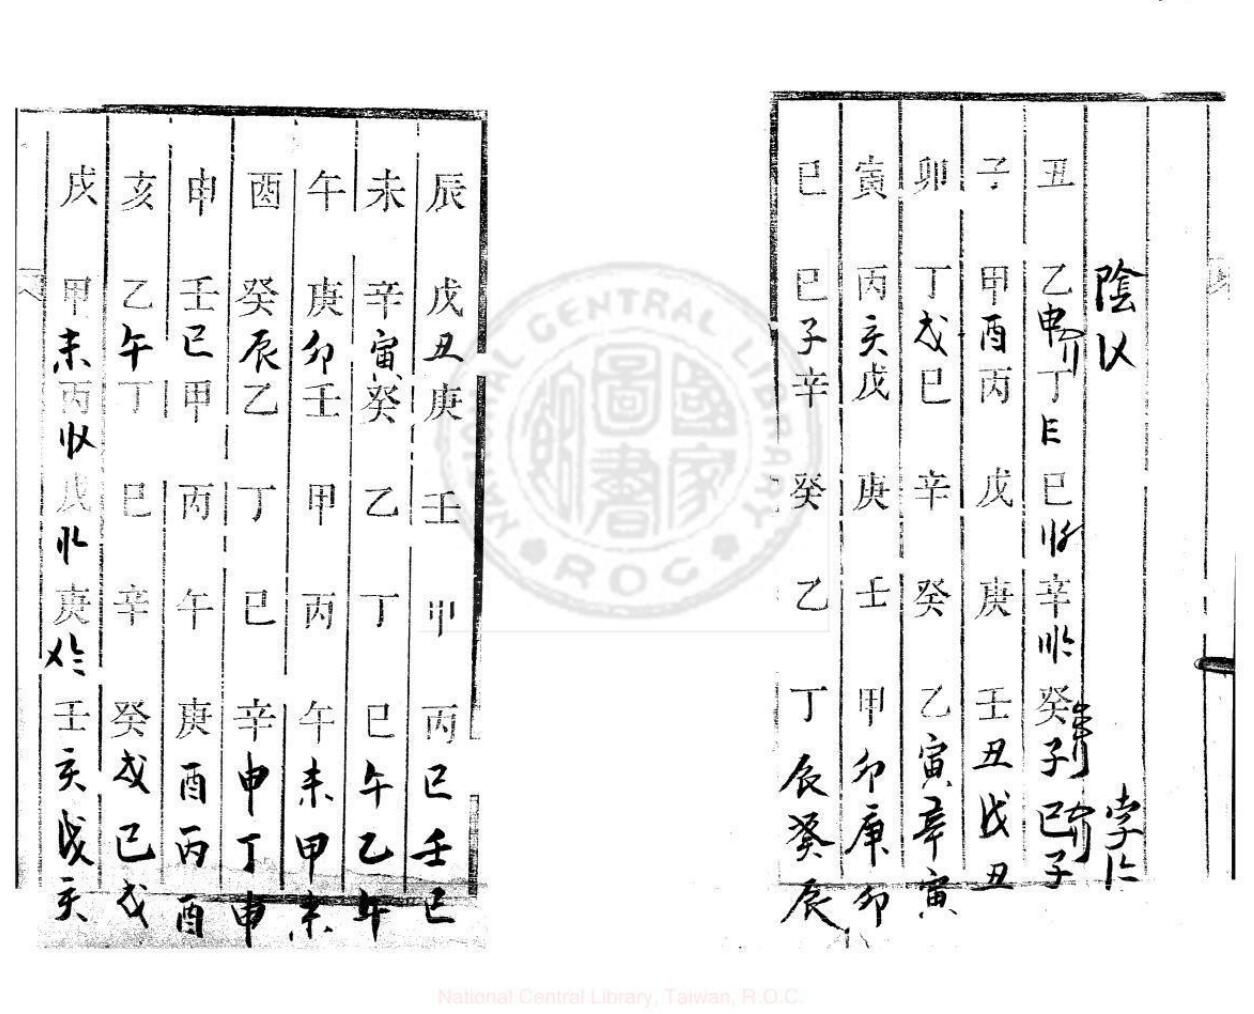 陰
丑 乙 申 丁 巳 辛 癸 子 巳 子
子 甲 酉 丙 戊 庚 壬 丑 戊 丑
卯 丁 戌 巳 辛 癸 乙 寅 辛 寅
寅 丙 亥 戊 庚 壬 甲 卯 庚 卯
巳 巳 子 辛 癸 乙 丁 辰 癸 辰
辰 戊 丑 庚 壬 甲 丙 巳 壬 巳
未 辛 寅 癸 乙 丁 巳 午 乙 午
午 庚 卯 壬 甲 丙 午 未 甲 未
酉 癸 辰 乙 丁 巳 辛 申 丁 申
申 壬 巳 甲 丙 午 庚 酉 丙 酉
亥 乙 午 丁 巳 辛 癸 戌 巳 戌
戌 甲 未 丙 戊 庚 壬 亥 戊 亥
NATIONAL CENTRAL LIBRARY ROC
國家圖書館
National Central Library, Taiwan, R.O.C.